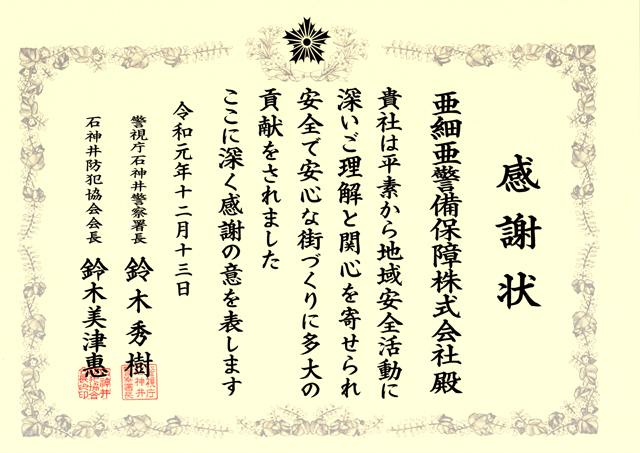 感謝状
亜細亜警備保障株式会社殿
貴社は平素から地域安全活動に
深いご理解と関心を寄せられ
安全で安心な街づくりに多大の
貢献をされました
ここに深く感謝の意を表します
令和元年十二月十三日
警視庁石神井警察署長 鈴木秀樹
石神井防犯協会会長 鈴木美津惠